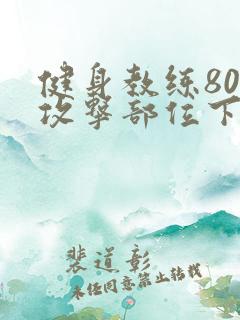 健身教练80
攻擊部位下
裴道彰
未任同意禁止转载